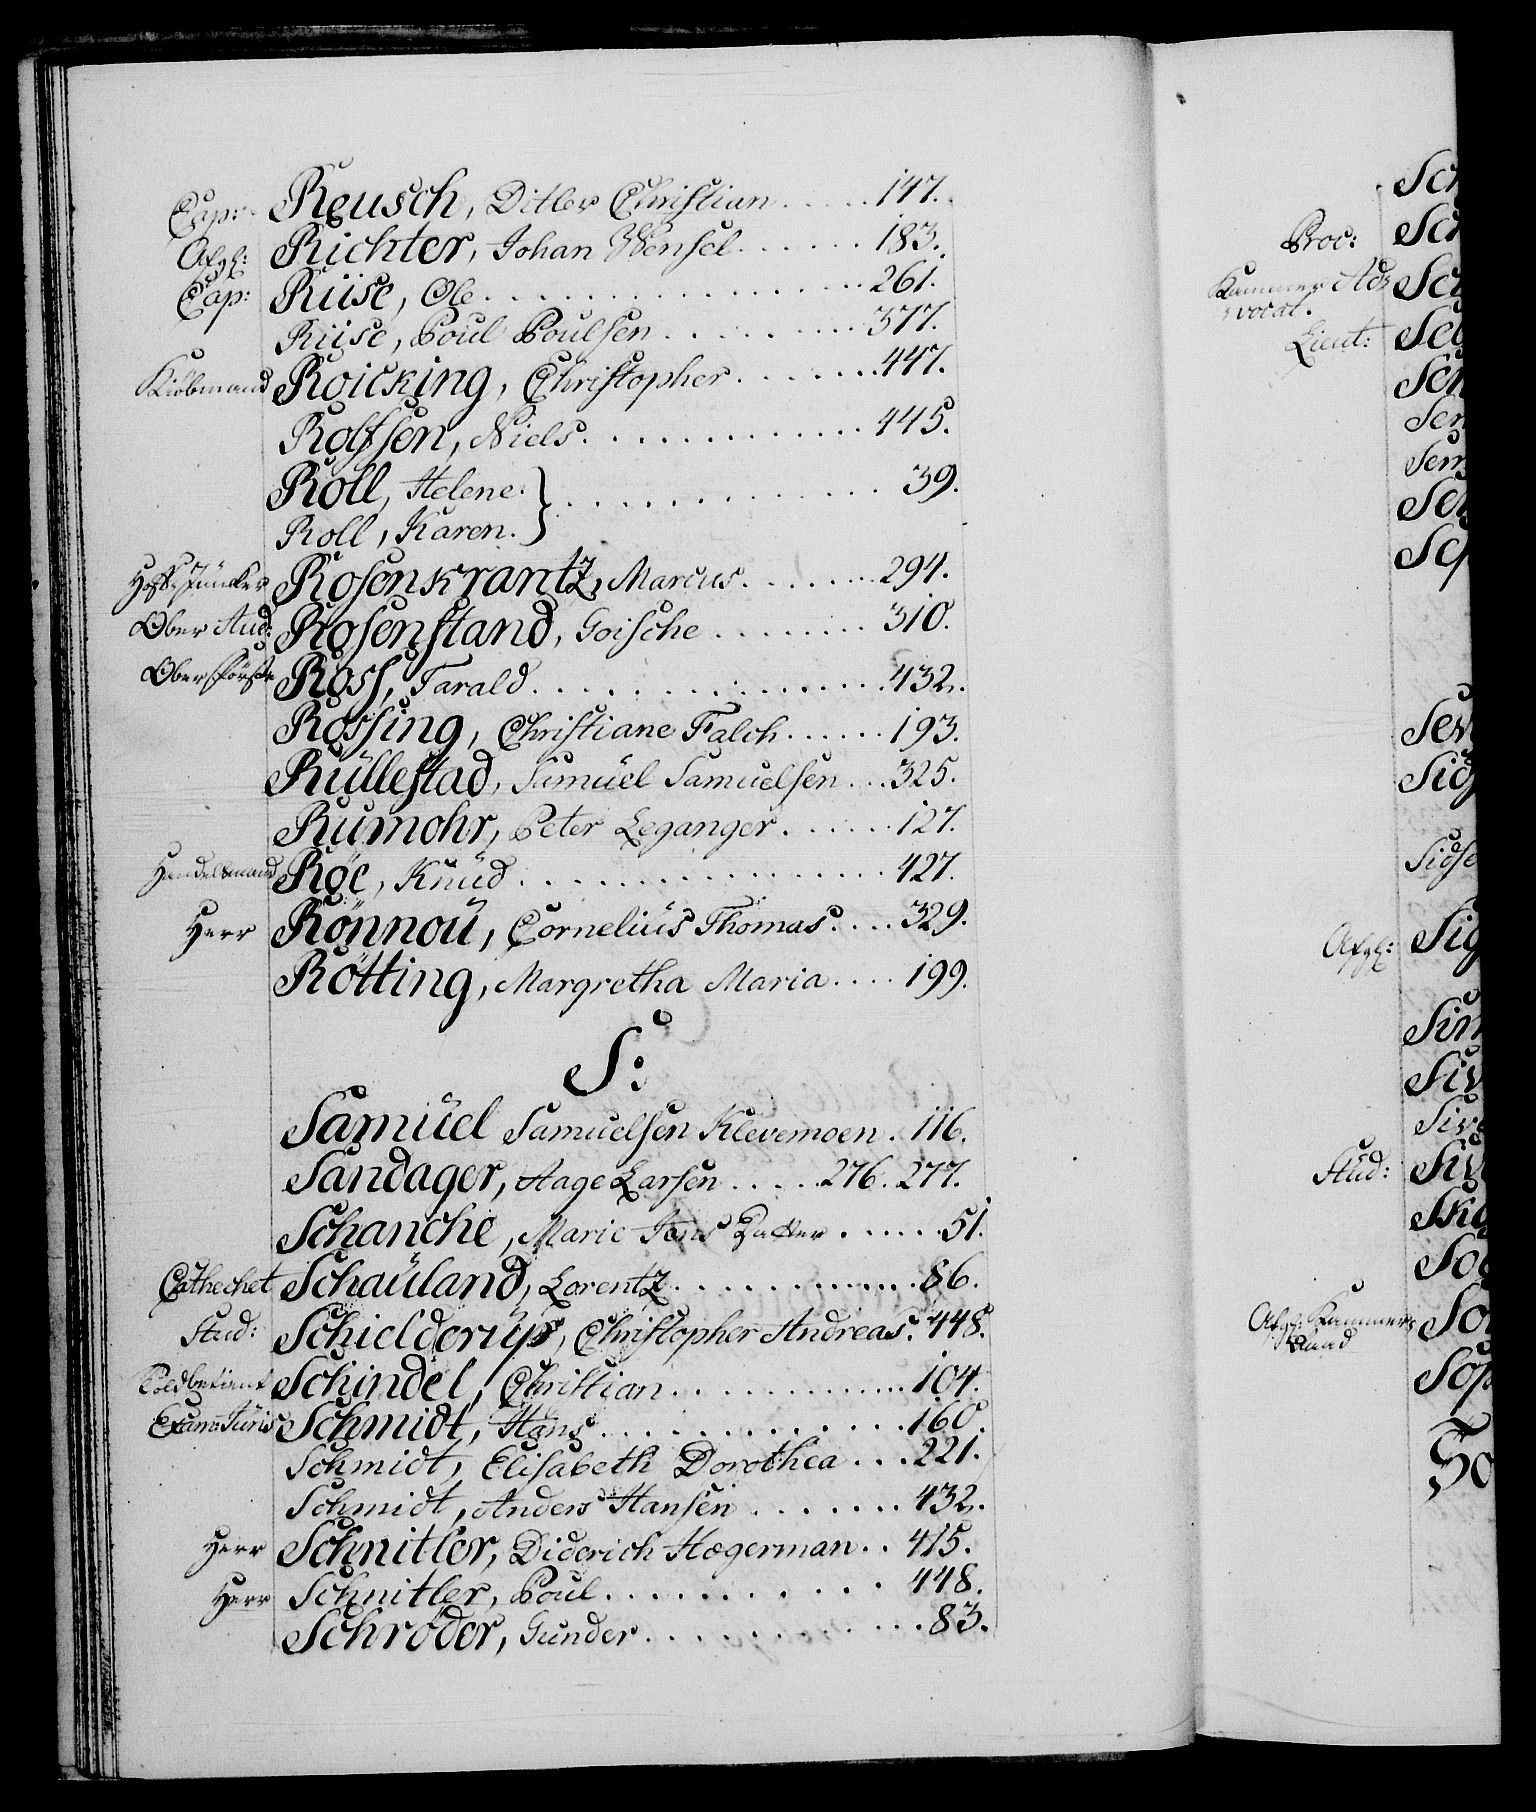 Cap: Reusch, Ditlev Christian.....147.
Afg: Richter, Johan Wensel......183.
Cap: Riise, Ole................261.
Riise, Poul Poulsen.........377.
Kiöbmand Roicking, Christopher.......447.
Rolfsen, Niels.............445.
Roll, Helene. } ..............39.
Roll, Karen.
Hoff Juncker Rosenkrantz, Marcus........294.
Ober Aud: Rosenstand, Goische........310.
Oberförster Ross, Tarald................432.
Rossing, Christiane Falch......193.
Rüllestad, Samüel Samuelsen...325.
Rumohr, Peter Leganger......127.
Handelsmand Röe, Knüd.................427.
Herr Rönnoü, Cornelius Thomas....329.
Rötting, Margretha Maria....199.
S:
Samüel Samuelsen Klevemoen.116.
Sandager, Aage Larsen.....276.277.
Schanche, Marie Jens Datter.....51.
Cathechet Schaüland, Lorentz.............86.
Stud: Schielderüp, Christopher Andreas.448.
Schindel, Christian.............104.
Exam: Jüris Schmidt, Hans..............160.
Schmidt, Elisabeth Dorothea...221.
Schmidt, Anders Hansen........432.
Herr Schnitler, Diderich Hægerman..415.
Herr Schnitler, Poul...........448.
Schröder, Gunder............83.
Proc:
Kammer Ad:
vocat.
Lieut:
Afg:
Stud:
Afg: Kammer
Raad